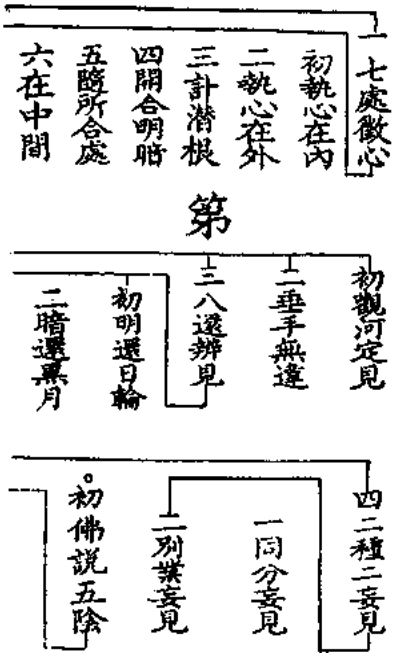 一七處徵心
初執心在內
二執心在外
三計潜根
四開合明暗
五隨所合處
六在中間
第
初觀河定見
二垂手無違
三八還辨見
初明還日輪
二暗還黑月
四二種二妄見
一同分妄見
二別業妄見
初佛説五陰